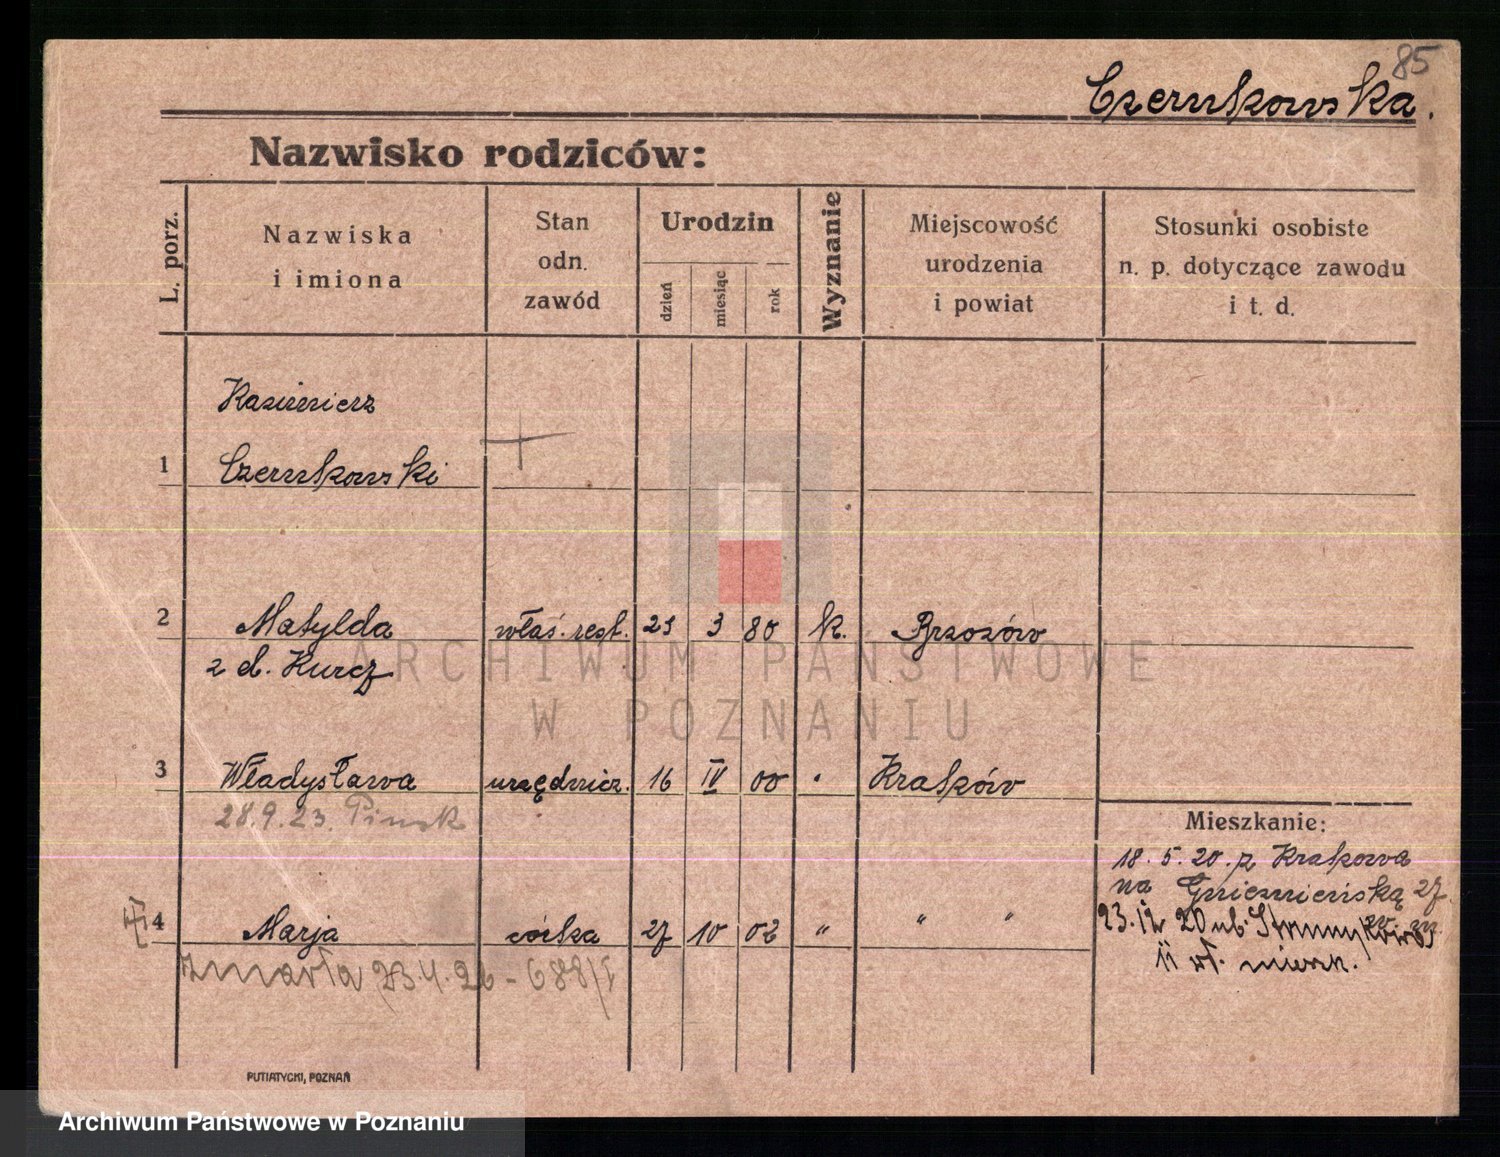 85
Czernkowska.
Nazwisko rodziców:
L. porz.
Nazwiska
i imiona
Stan
odn.
zawód
Urodzin
dzień
miesiąc
rok
Wyznanie
Miejscowość
urodzenia
i powiat
Stosunki osobiste
n. p. dotyczące zawodu
i t. d.
Kazimierz
1 Czernkowski
2 Matylda właś. rest. 3 80 k. Brzozów
z d. Kurcz
3 Władysława urzędnicz. 16 IV 00 Kraków
28.9.23. Pinsk
Mieszkanie:
18. 5. 20. z Krakowa
na Gnieznieńską 27
23. 12 20 ub.
wł. mieszk.
4 Marja córka 27 10 02 " " "
zmarła 23.4.26 - 688/1
PUTIATYCKI, POZNAŃ
ARCHIWUM PAŃSTWOWE
W POZNANIU
Archiwum Państwowe w Poznaniu